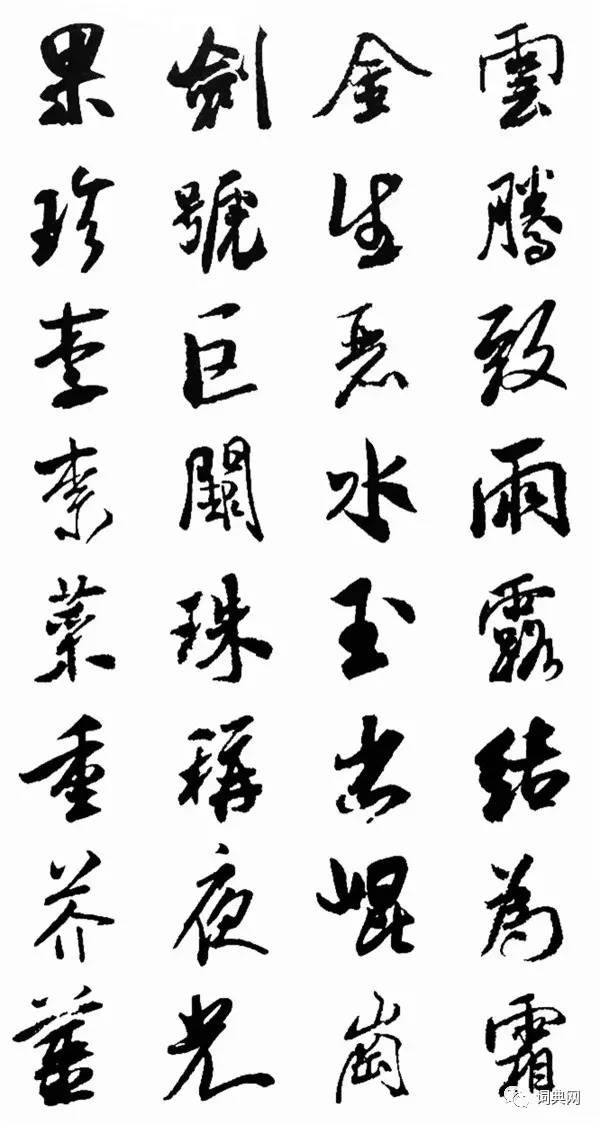 雲騰致雨露結為霜
金生麗水玉出崐崗
劍號巨闕珠稱夜光
果珍李柰菜重芥薑
词典网